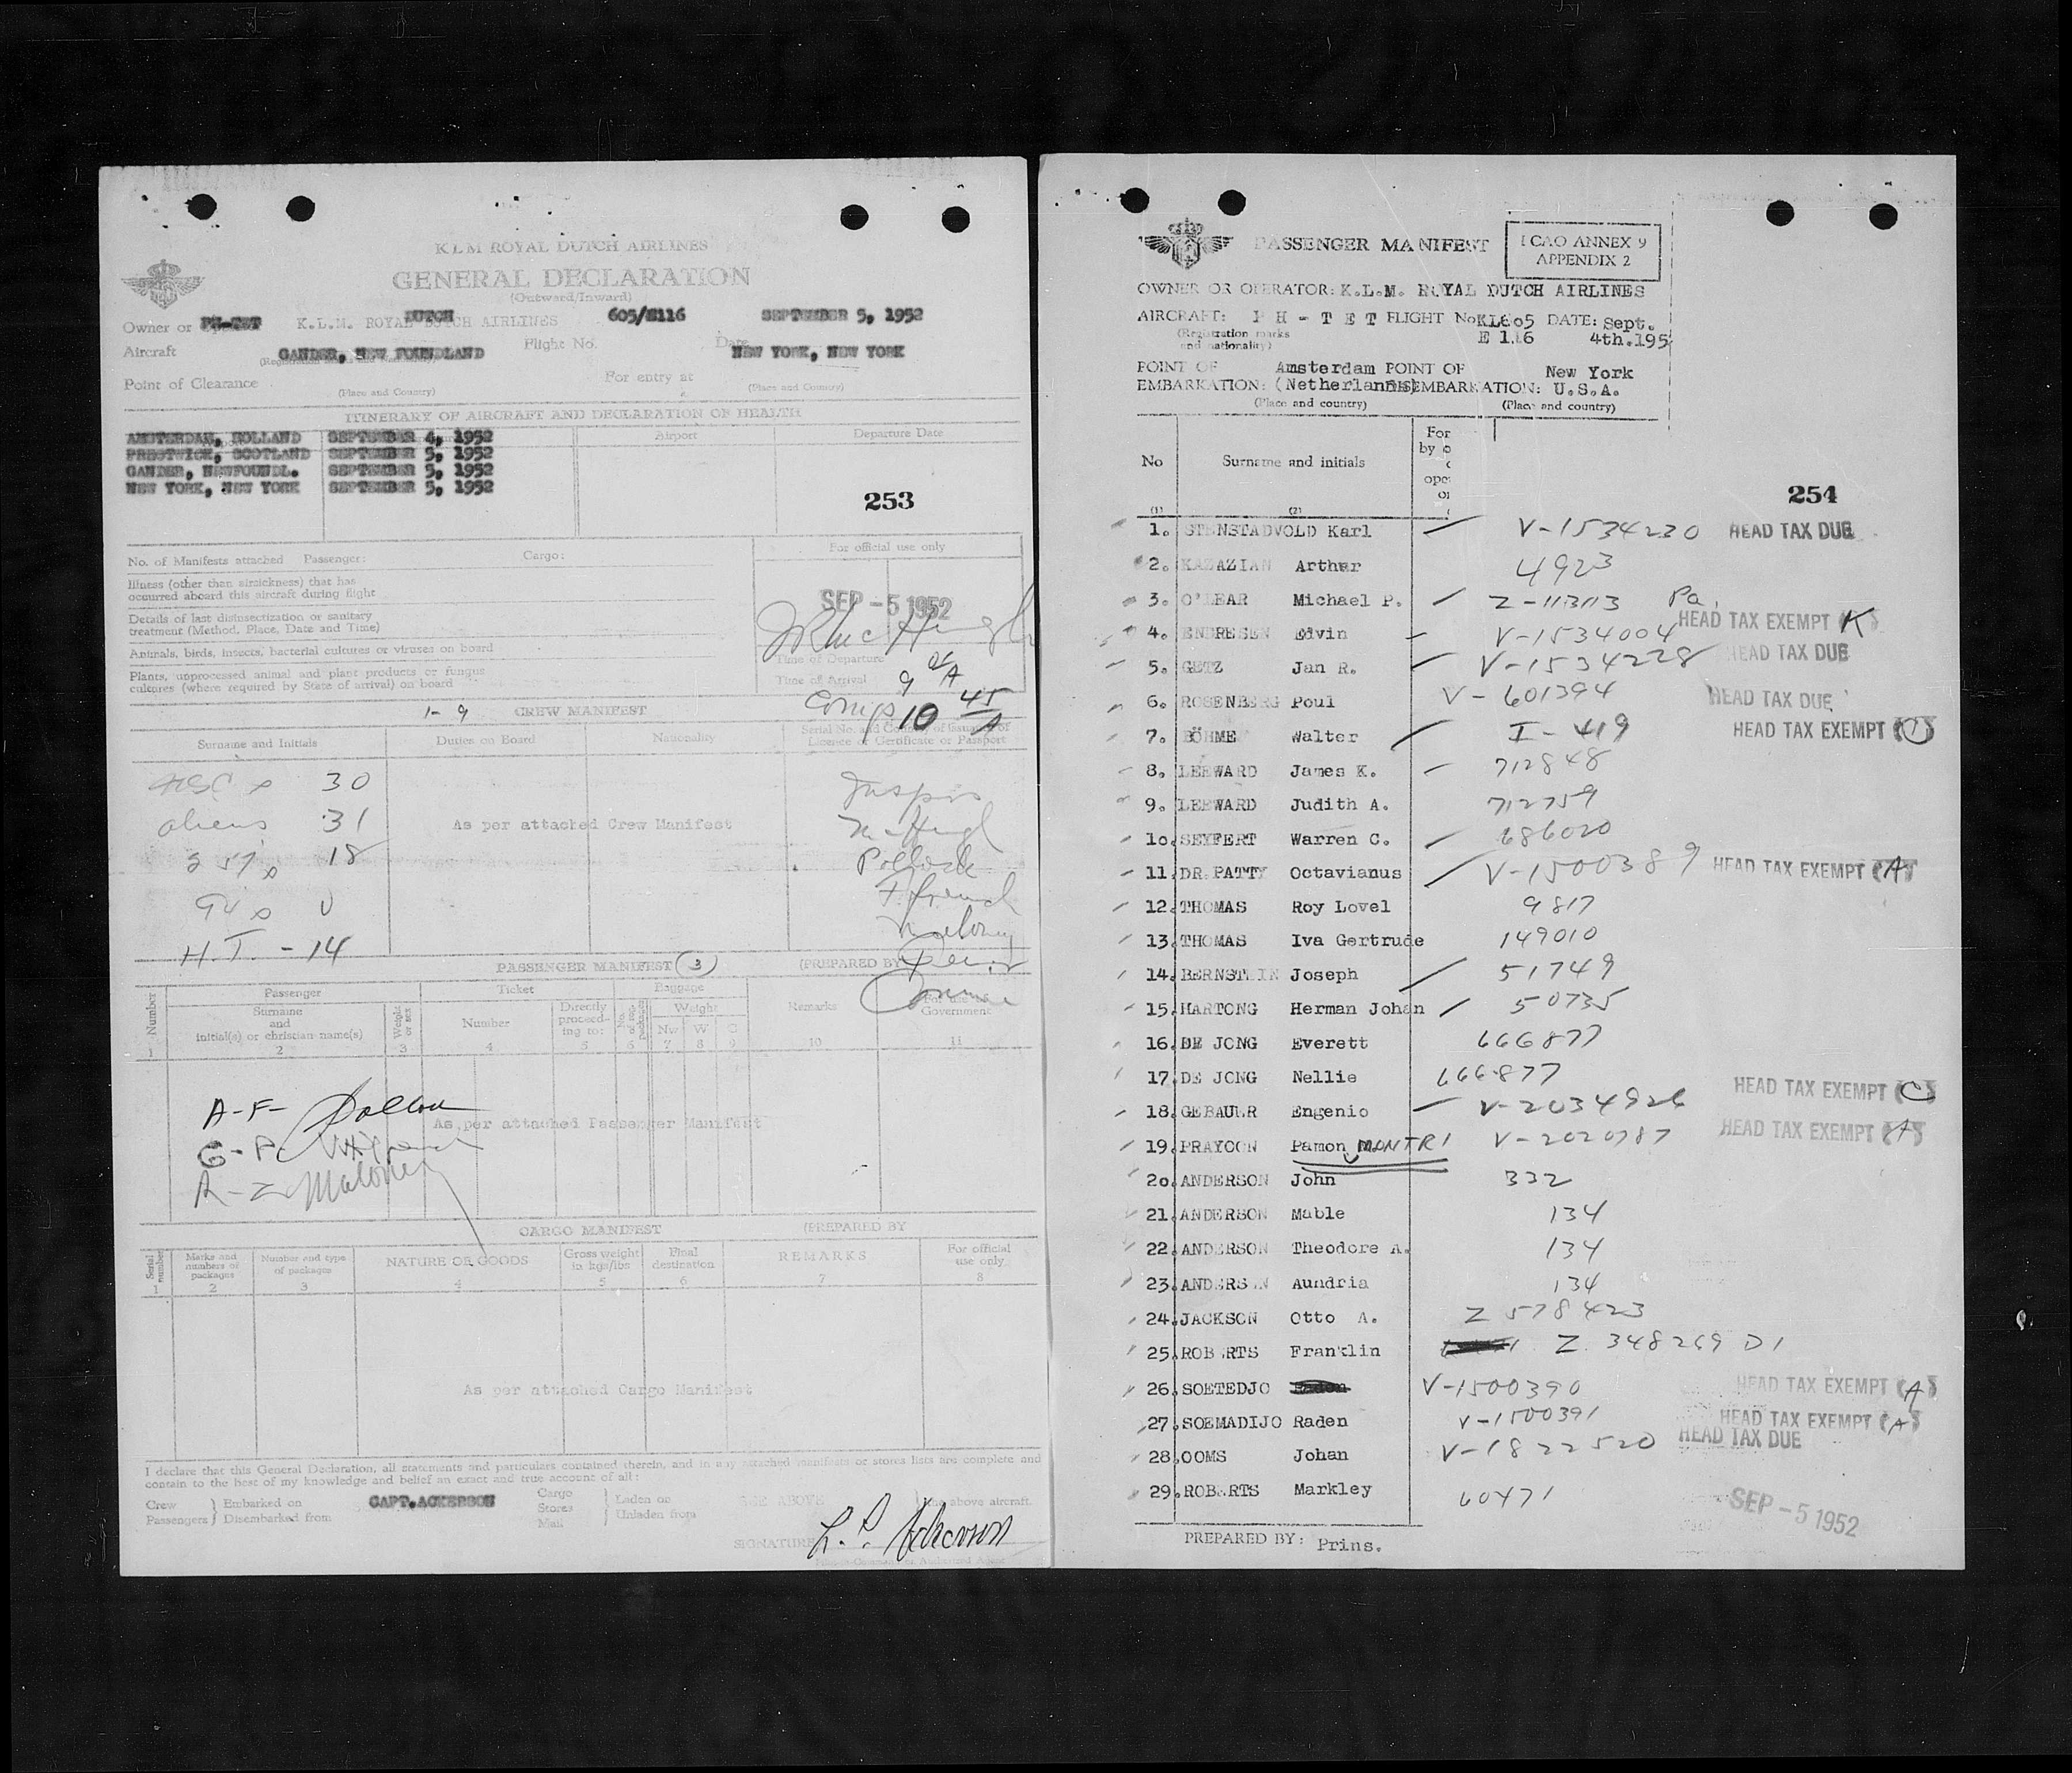 KLM ROYAL DUTCH AIRLINES
GENERAL DECLARATION
(Outward/Inward)
Owner or PH-TET K.L.M. ROYAL DUTCH AIRLINES DUTCH 605/E116 SEPTEMBER 5, 1952
Aircraft GANDER, NEW FOUNDLAND Flight No. Date NEW YORK, NEW YORK
Point of Clearance For entry at
(Place and Country) (Place and Country)
ITINERARY OF AIRCRAFT AND DECLARATION OF HEALTH
Airport Departure Date
AMSTERDAM, HOLLAND SEPTEMBER 4, 1952
PRESTWICK, SCOTLAND SEPTEMBER 5, 1952
GANDER, NEWFOUNDL. SEPTEMBER 5, 1952
NEW YORK, NEW YORK SEPTEMBER 5, 1952
253
No. of Manifests attached Passenger: Cargo: For official use only
Illness (other than airsickness) that has
occurred aboard this aircraft during flight
SEP - 5 1952
Details of last disinsectization or sanitary
treatment (Method, Place, Date and Time)
Animals, birds, insects, bacterial cultures or viruses on board
Time of Departure
Plants, unprocessed animal and plant products or fungus
cultures (where required by State of arrival) on board
Time of Arrival 9 A
1-9 CREW MANIFEST Comp 10 45 A
Surname and Initials Duties on Board Nationality Serial No. and Country of issuance of
Licence or Certificate or Passport
30
aliens 31 As per attached Crew Manifest
18 Pollock
0
H.T. - 14
PASSENGER MANIFEST (3) (PREPARED BY
Number Passenger Ticket Baggage Remarks For use of Government
Surname and initial(s) or christian name(s) Weight or sex Number Directly proceeding to: No. of packages Weight
Nw W C
1 2 3 4 5 6 7 8 9 10 11
A-F-
As per attached Passenger Manifest
G-
R-Z Maloney
CARGO MANIFEST (PREPARED BY
Serial number Marks and numbers of packages Number and type of packages NATURE OF GOODS Gross weight in kgs/lbs Final destination REMARKS For official use only
1 2 3 4 5 6 7 8
As per attached Cargo Manifest
I declare that this General Declaration, all statements and particulars contained therein, and in any attached manifests or stores lists are complete and
contain to the best of my knowledge and belief an exact and true account of all:
Crew Passengers } Embarked on Disembarked from CAPT. ACKERSON Cargo Stores Mail } Laden on Unladen from SEE ABOVE the above aircraft.
SIGNATURE
PASSENGER MANIFEST
ICAO ANNEX 9
APPENDIX 2
OWNER OR OPERATOR: K.L.M. ROYAL DUTCH AIRLINES
AIRCRAFT: PH - TET FLIGHT No KL605 DATE: Sept.
(Registration marks and nationality) E 116 4th.195
POINT OF EMBARKATION: Amsterdam (Netherlands) POINT OF DISEMBARKATION: New York U.S.A.
(Place and country) (Place and country)
No Surname and initials For
(1) (2)
254
1. STENSTADVOLD Karl V-1534230 HEAD TAX DUE
2. KAZAZIAN Arthur 4923
3. O'LEAR Michael P. Z-113113 Pa.
4. ENDRESEN Eivin V-1534004 HEAD TAX EXEMPT (K)
5. GETZ Jan R. V-1534228 HEAD TAX DUE
6. ROSENBERG Poul V-601394 HEAD TAX DUE
7. BÖHME Walter I-419 HEAD TAX EXEMPT
8. LEEWARD James K. 712848
9. LEEWARD Judith A. 712759
10. SEYFERT Warren C. 686020
11. DR.PATTY Octavianus V-1500389 HEAD TAX EXEMPT (A)
12. THOMAS Roy Lovel 9817
13. THOMAS Iva Gertrude 149010
14. BERNSTEIN Joseph 51749
15. HARTONG Herman Johan 50735
16. DE JONG Everett 666877
17. DE JONG Nellie 666877
18. GEBAUER Engenio V-2034926 HEAD TAX EXEMPT (C)
19. PRAYOON Pamon MONTRI V-2020787 HEAD TAX EXEMPT (A)
20. ANDERSON John 332
21. ANDERSON Mable 134
22. ANDERSON Theodore A. 134
23. ANDERSON Aundria 134
24. JACKSON Otto A. Z 578423
25. ROBERTS Franklin Z 348269 D1
26. SOETEDJO V-1500390 HEAD TAX EXEMPT (A)
27. SOEMADIJO Raden V-1500391 HEAD TAX EXEMPT (A)
28. OOMS Johan V-1822520 HEAD TAX DUE
29. ROBERTS Markley 60471
SEP - 5 1952
PREPARED BY: Prins.